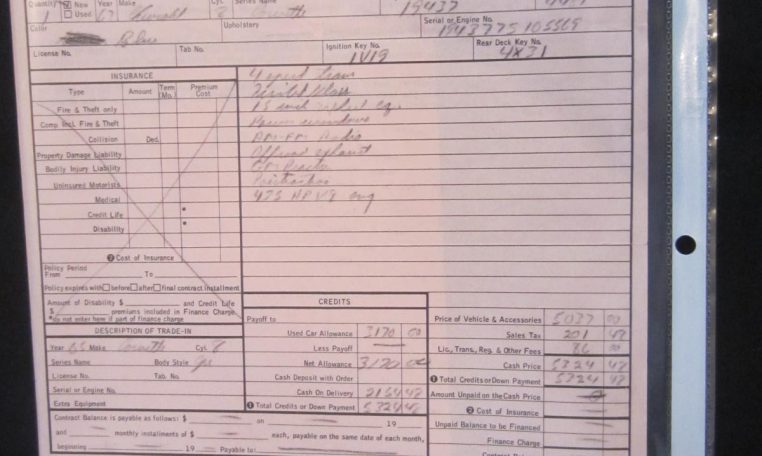 Quantity New Year Make Cyl. Series Name
1 Used 67 Chevrolet 8 Corvette 19437
Color Upholstery Serial or Engine No.
Blue 194377S105569
License No. Tab No. Ignition Key No. Rear Deck Key No.
1V19 4X31
INSURANCE 4 speed trans
Type Amount Term (Mo.) Premium Cost
Fire & Theft only
Comp. Incl. Fire & Theft Power windows
Collision Ded. AM-FM Radio
Property Damage Liability Offroad exhaust
Bodily Injury Liability
Uninsured Motorists Positraction
Medical 435 HP V8 eng
Credit Life
Disability
2 Cost of Insurance
Policy Period
From To
Policy expires with before after final contract installment
Amount of Disability $ and Credit Life
$ premiums included in Finance Charge
*do not enter here if part of finance charge
DESCRIPTION OF TRADE-IN
Year 65 Make Corvette Cyl. 8
Series Name Body Style
License No. Tab. No.
Serial or Engine No.
Extra Equipment
CREDITS
Payoff to
Used Car Allowance 3170 00
Less Payoff
Net Allowance 3170 00
Cash Deposit with Order
Cash On Delivery 2154 48
1 Total Credits or Down Payment 5324 48
Price of Vehicle & Accessories 5037 00
Sales Tax 201 48
Lic., Trans., Reg. & Other Fees 86 00
Cash Price 5324 48
1 Total Credits or Down Payment 5324 48
Amount Unpaid on the Cash Price
2 Cost of Insurance
Unpaid Balance to be Financed
Finance Charge
Contract Balance is payable as follows: $ on 19
and monthly installments of $ each, payable on the same date of each month,
beginning 19 Payable to: